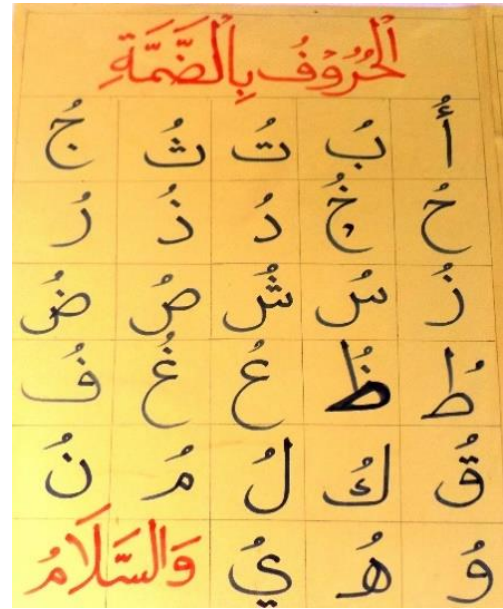 الْحُرُوْفُ بِالْضَّمَّةِ
أُ بُ تُ ثُ جُ
حُ خُ دُ ذُ رُ
زُ سُ شُ صُ ضُ
طُ ظُ عُ غُ فُ
قُ كُ لُ مُ نُ
وُ هُ يُ وَالسَّلَامُ